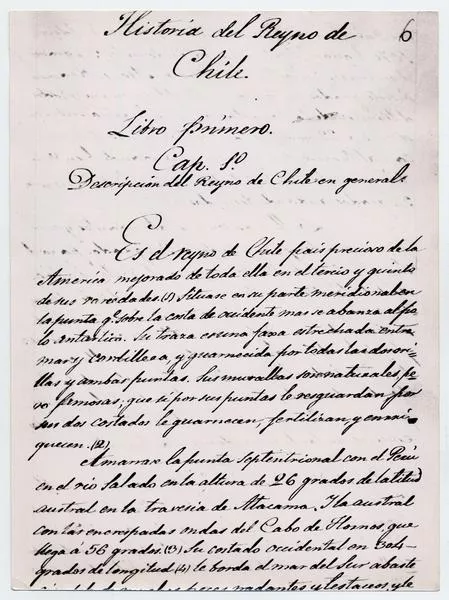 Historia del Reyno de
6
Chile.
Libro primero.
Cap. 1º
Descripcion del Reyno de Chile en general.
Es el reyno de Chile pais precioso de la
America mejorado de toda ella en el tercio y quinto
de sus variedades.(1) Situase en su parte meridional en
la punta qe. sobre la costa de occidente mas se abanza al po
lo antartico. Su traza es una faxa estrechada entre
mar y cordillera, y guarnecida por todas las dos ori-
llas y ambas puntas. Sus murallas son naturales, pe-
ro famosas; que si por sus puntas le resguardan por
sus dos costados le guarnecen, fertilizan y enrri-
quecen.(2)
Amarrase la punta septentrional con el Perú
en el rio Salado en la altura de 26 grados de latitud
austral en la travesia de Atacama. I la austral
con las encrespadas ondas del Cabo de Hornos, que
llega á 56 grados.(3) Su costado occidental en 304
grados de longitud (4) le borda el mar del Sur abaste
peces nadantes y testaceos, y le